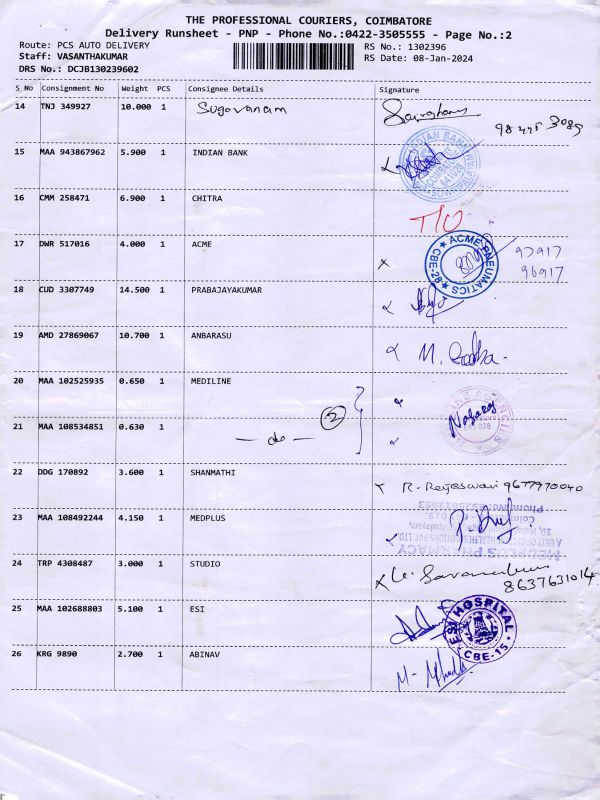 THE PROFESSIONAL COURIERS, COIMBATORE
Delivery Runsheet - PNP - Phone No.:0422-3505555 - Page No.:2
Route: PCS AUTO DELIVERY
RS No.: 1302396
Staff: VASANTHAKUMAR
RS Date: 08-Jan-2024
DRS No.: DCJB130239602
S No Consignment No Weight PCS Consignee Details Signature
14 TNJ 349927 10.000 1 Sugavanam
15 MAA 943867962 5.900 1 INDIAN BANK
16 CMM 258471 6.900 1 CHITRA
T/O
17 DWR 517016 4.000 1 ACME
ACME PNEUMATICS CBE-28
97917
96917
18 CUD 3307749 14.500 1 PRABAJAYAKUMAR
19 AMD 27869067 10.700 1 ANBARASU
20 MAA 102525935 0.650 1 MEDILINE
Nagaraj
21 MAA 108534851 0.630 1 — do — 2
22 DDG 170892 3.600 1 SHANMATHI R. Rajaswari 9677970040
23 MAA 108492244 4.150 1 MEDPLUS
MEDPLUS PHARMACY
24 TRP 4308487 3.000 1 STUDIO
8637631014
25 MAA 102688803 5.100 1 ESI
ESI HOSPITAL CBE-15
26 KRG 9890 2.700 1 ABINAV